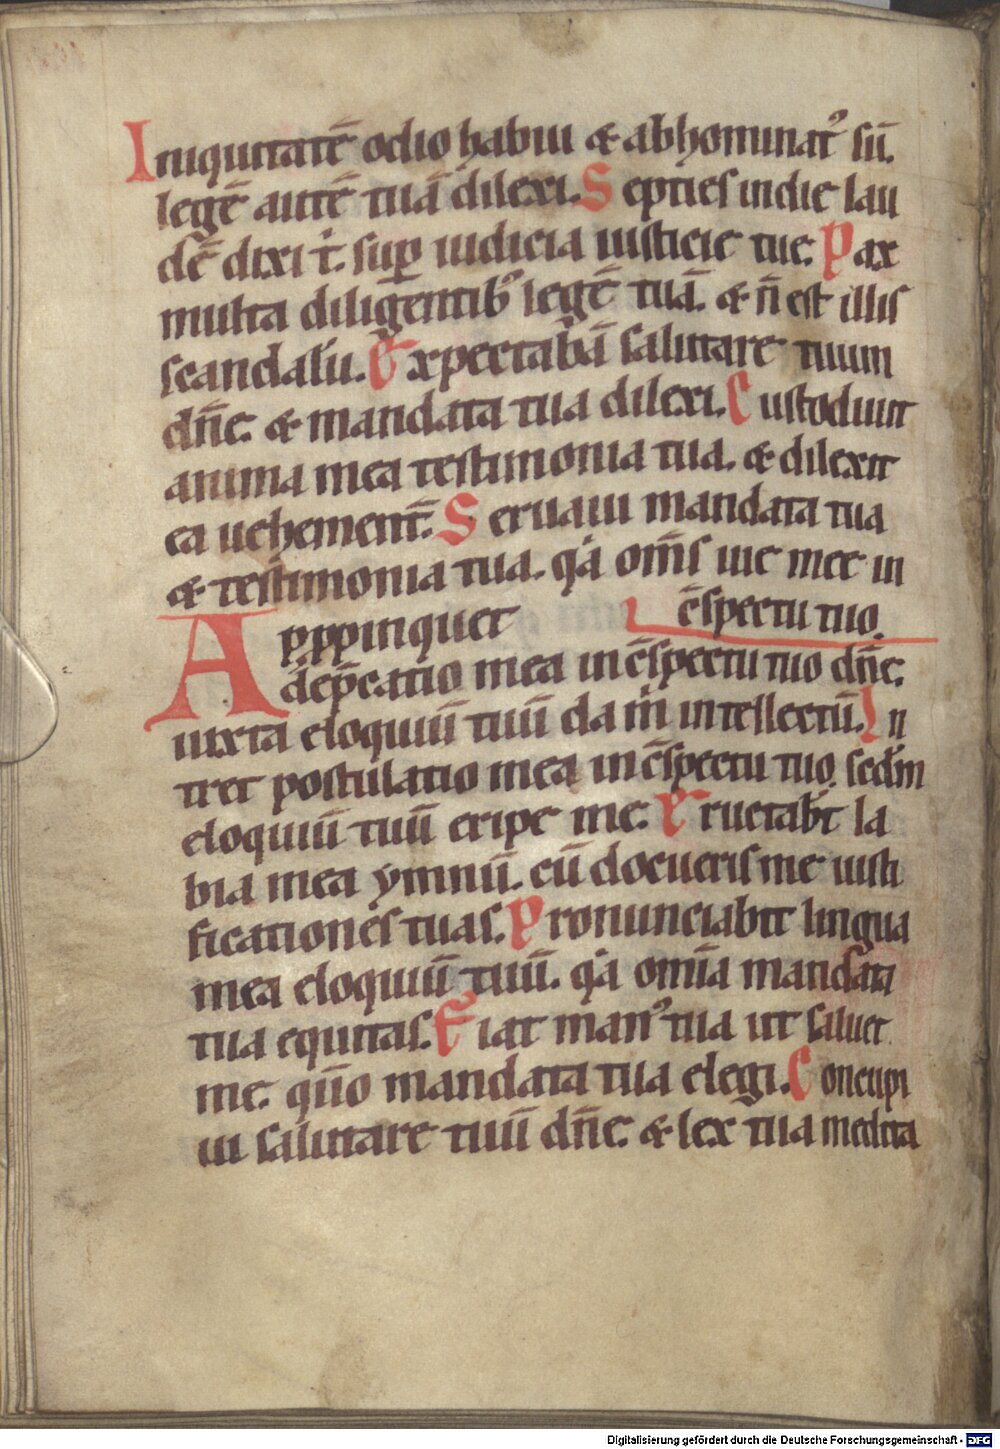 Iniquitatē odio habui & abhominat᷒ sū.
legē autē tuā dilexi. Septies in die lau
dē dixi t̄. suꝑ iudicia iusticie tue. Pax
multa diligentib᷒ legē tuā. & ñ est illis
scandalū. Expectabā salutare tuum
dñe. & mandata tua dilexi. Custodiuit
anima mea testimonia tua. & dilexit
ea uehement̄. Seruaui mandata tua
& testimonia tua. q̇a om̄s uie mee in
c̄spectu tuo.
Apꝓpinquet
dep̄catio mea in c̄spectu tuo dñe.
iuxta eloquiū tuū da m̍ intellectū. In
tret postulatio mea in c̄spectu tuo. sedm̄
eloquiū tuū eripe me. Eructabt̄ la
bia mea ymnū. cū docueris me iusti
ficationes tuas. Pronunciabit lingua
mea eloquiū tuū. q̇a om̄ia mandata
tua equitas. Fiat man᷒ tua ut saluet
me. qn̄o mandata tua elegi. Concupi
ui salutare tuū dñe. & lex tua medita
Digitalisierung gefördert durch die Deutsche Forschungsgemeinschaft - DFG